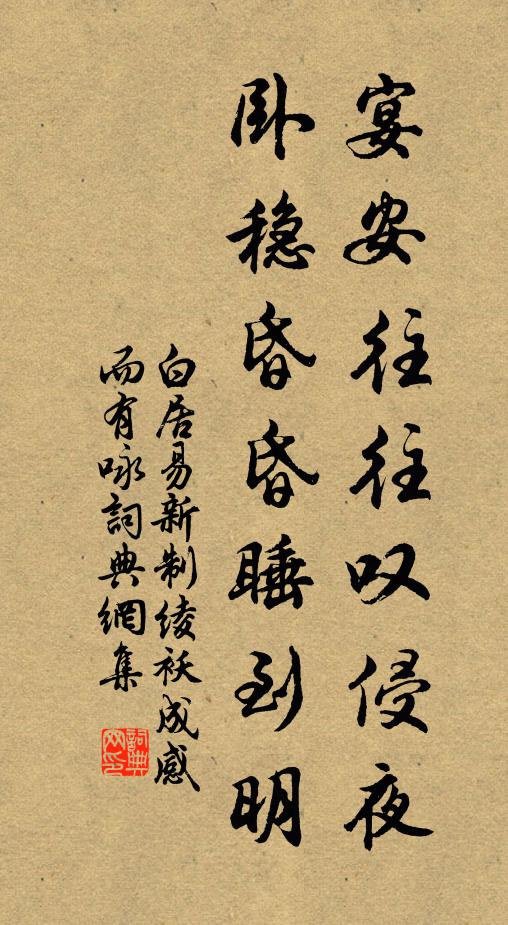 宴安往往叹侵夜
卧稳昏昏睡到明
白居易新制绫袄成感
而有咏詞典網集
詞典网印